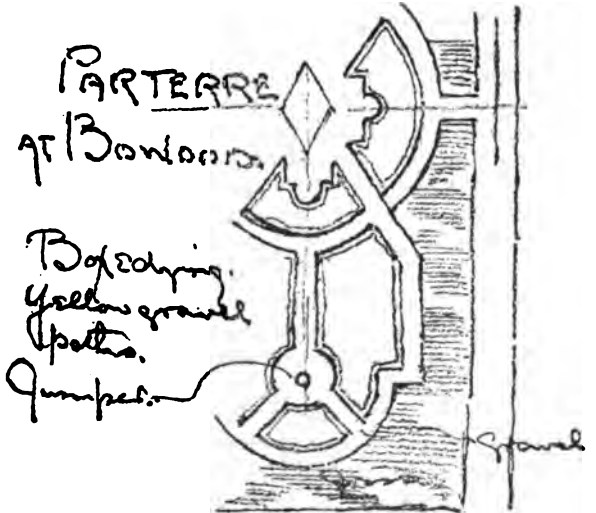 PARTERRE
AT BOWOOD.
Box edging.
Yellow gravel
paths.
Juniper.
gravel